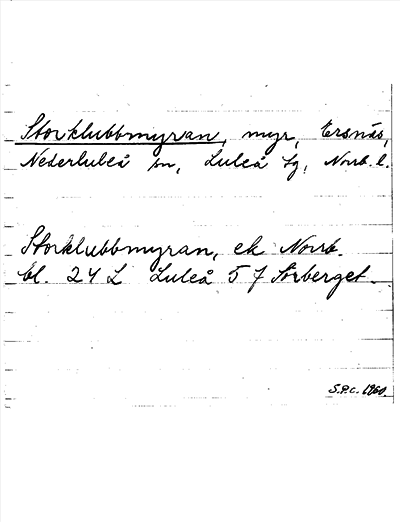 Storklubbmyran, myr, Ersnäs,
Nederluleå sn, Luleå tg, Norrb. l.
Storklubbmyran, ek Norrb.
bl. 24 L Luleå 5 f Sörberget.
S.P.C. 1960.